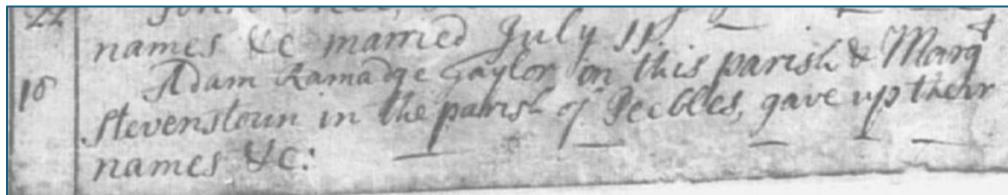 22
names &c married July 11
18 Adam Ramadge Taylor in this parish & Margt
Stevenstoun in the parish of Peebles, gave up their
names &c: